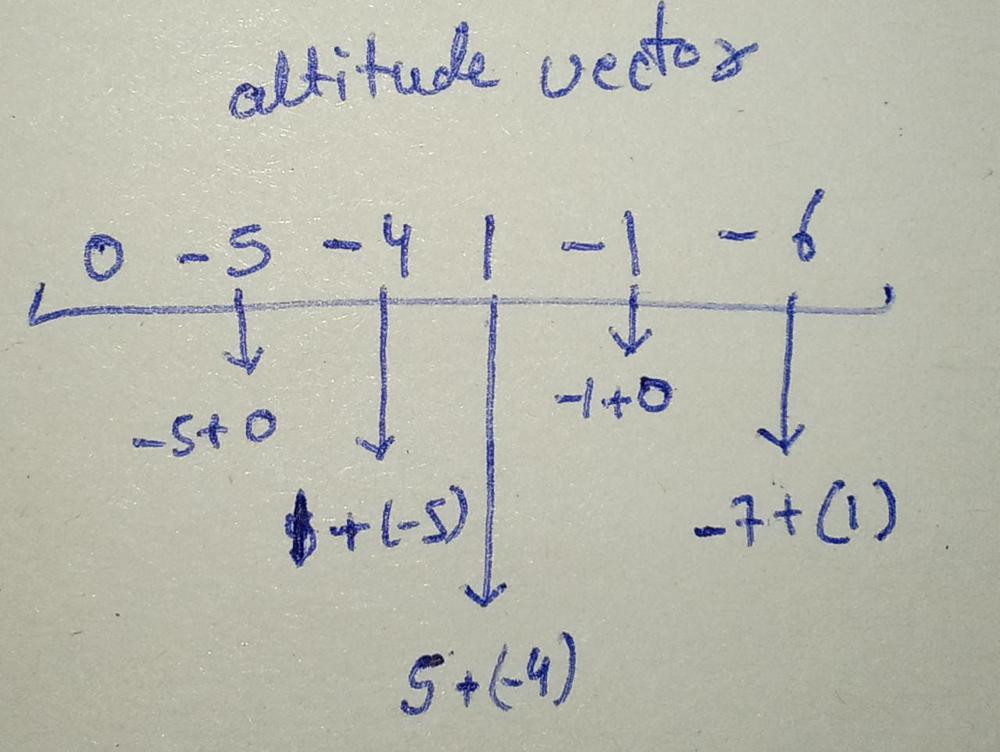 altitude vector
0 -5 -4 1 -1 -6
-5+0
-1+0
1+(-5)
-7+(1)
5+(-4)